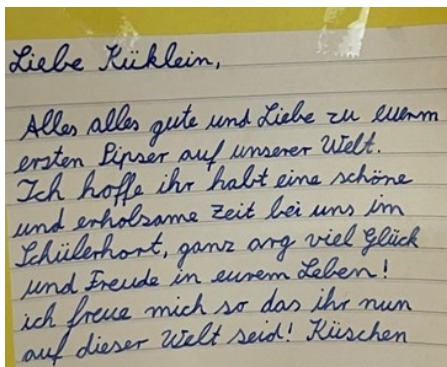 Liebe Küklein,
Alles alles gute und Liebe zu euerm
ersten Pipser auf unserer Welt.
Ich hoffe ihr habt eine schöne
und erholsame Zeit bei uns im
Schülerhort, ganz arg viel Glück
und Freude in eurem Leben!
ich freue mich so das ihr nun
auf dieser Welt seid! Küschen